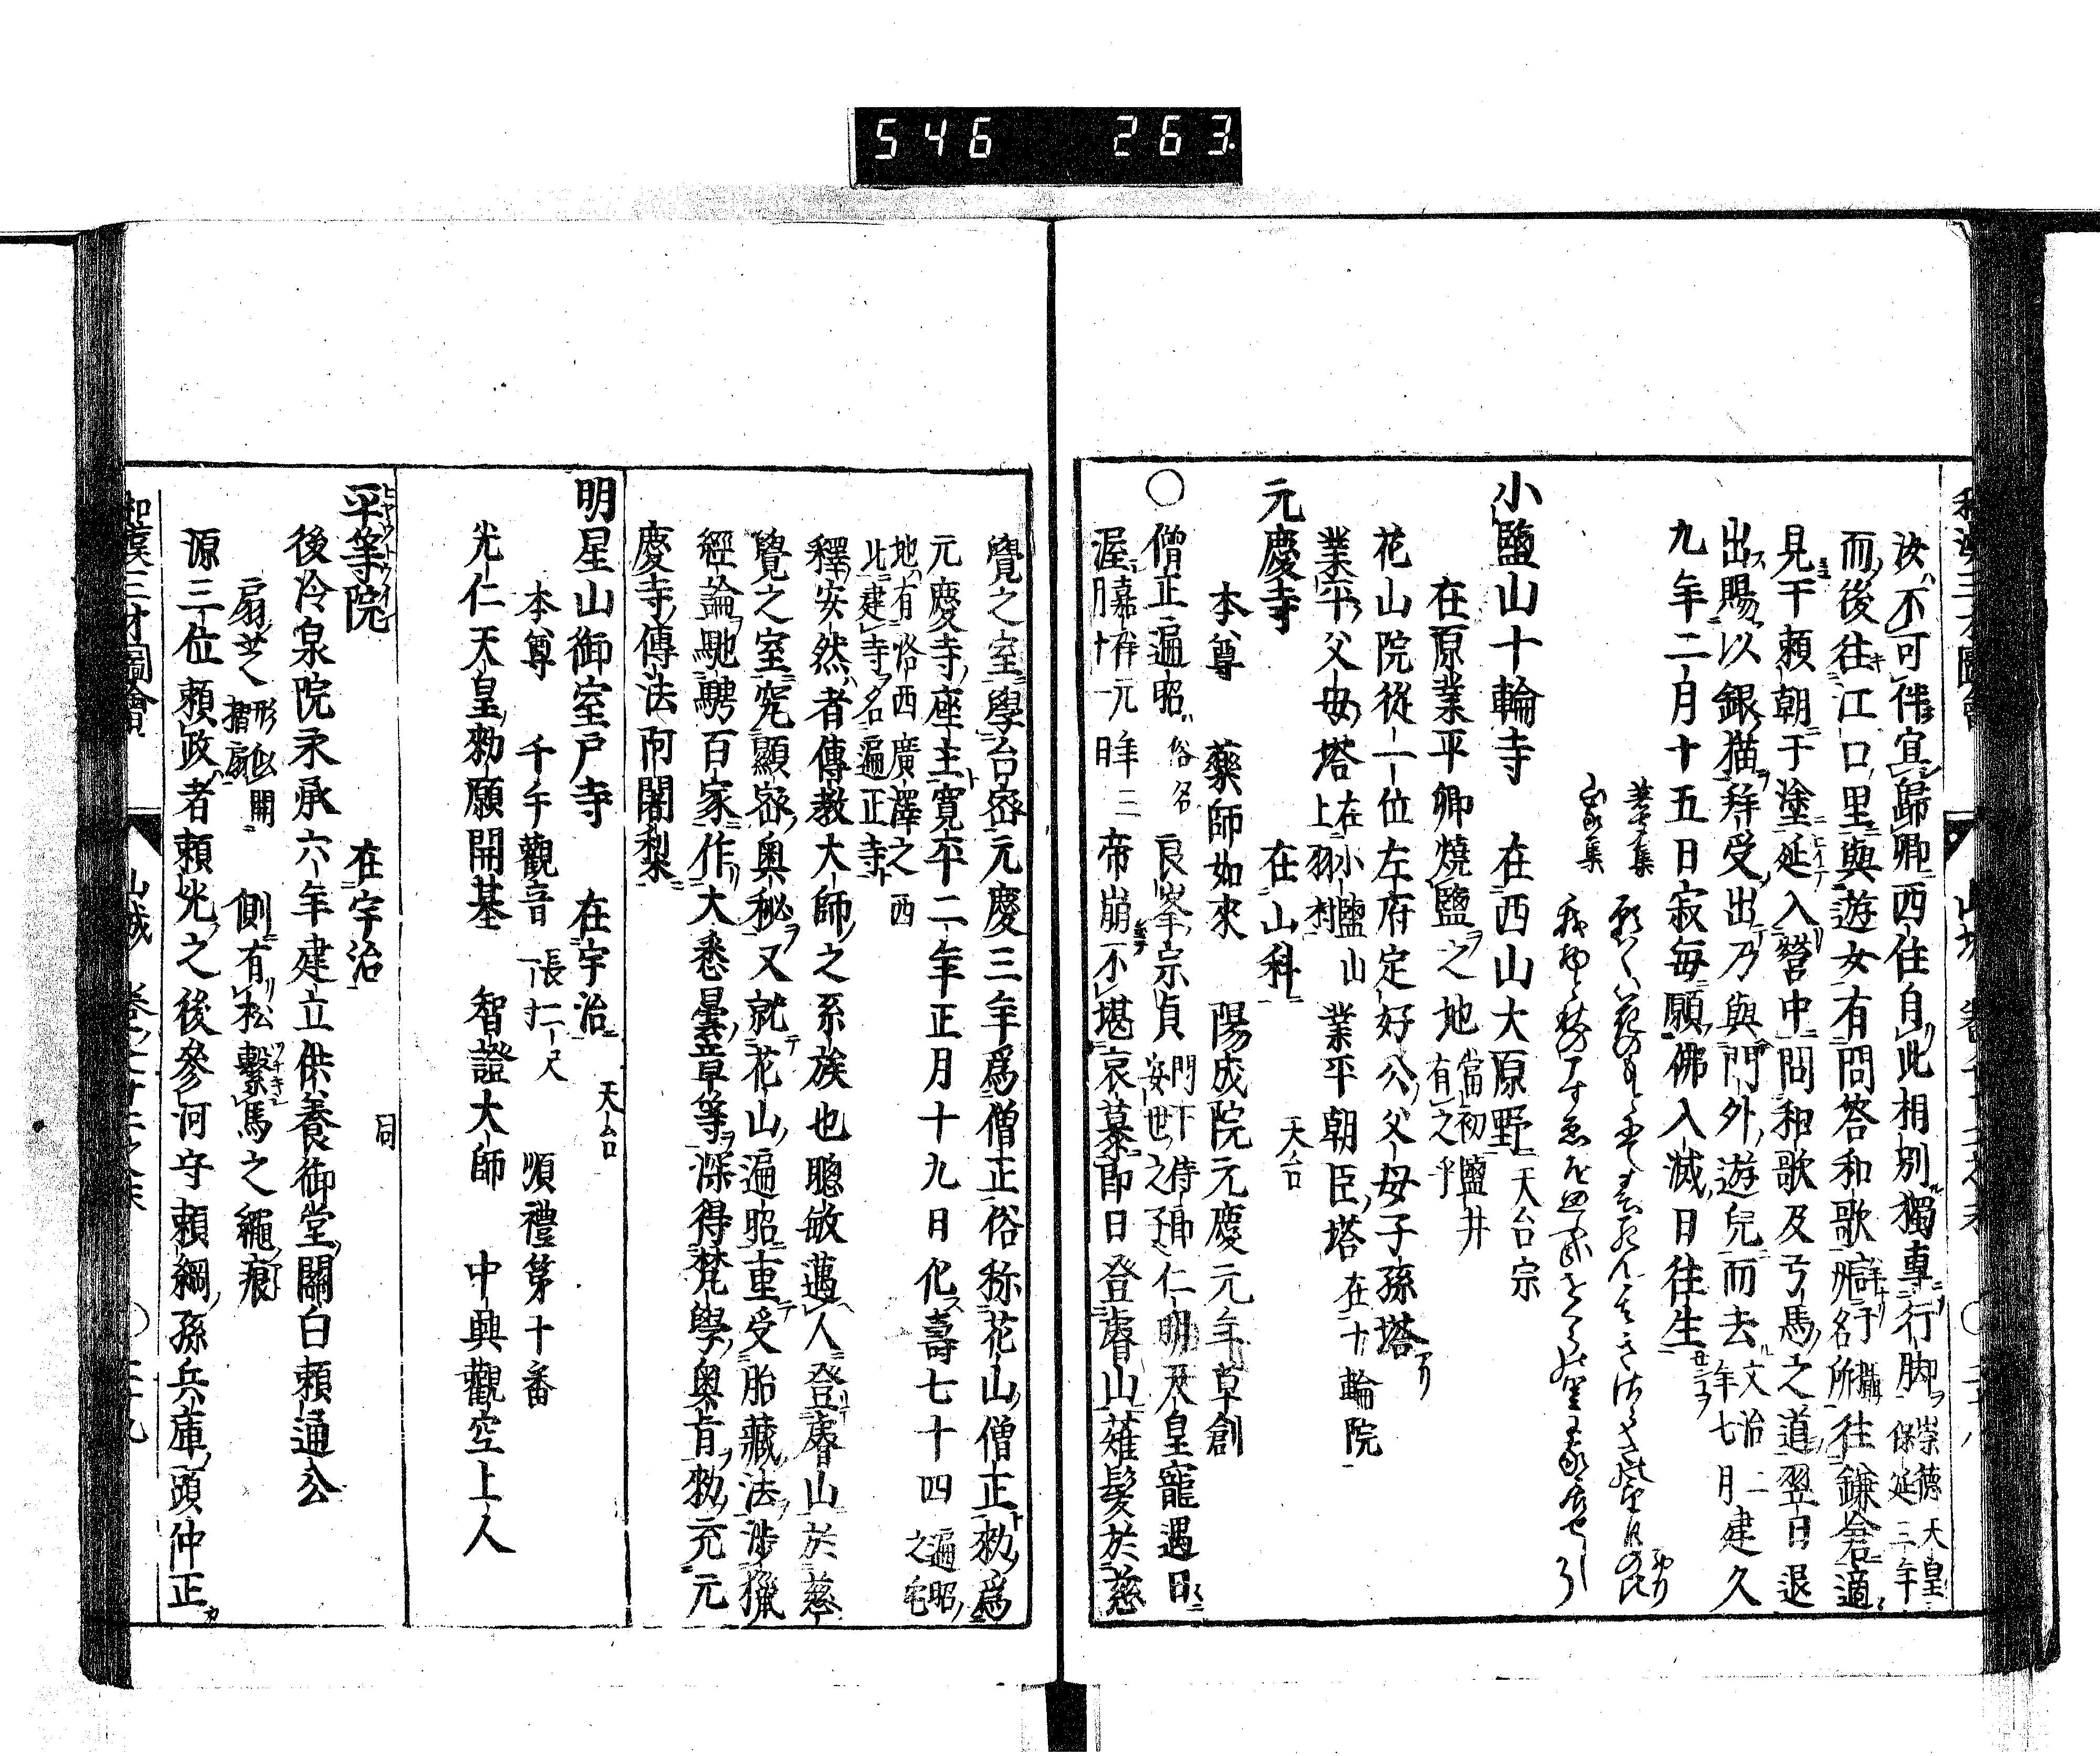 546 263
汝不可伴宜歸卿西住自此相別獨專行脚 崇德天皇保延三年
而後往江口里與遊女有問答和歌 詳于攝州名所 往鎌倉適
見于賴朝于塗延入營中問和歌及弓馬之道翌日退
出賜以銀猫拜受出乃與門外遊兒而去 文治二年七月 建久
九年二月十五日寂每願佛入滅日往生
家集
小鹽山十輪寺 在西山大原野 天台宗
在原業平卿燒鹽之地 當初鹽井有之乎
花山院從一位左府定好公父母子孫塔
業平父母塔 在小鹽山上羽村 業平朝臣塔 在十輪院
元慶寺 在山科 天台
本尊 藥師如來 陽成院元慶元年草創
○僧正遍昭 俗名 良峯宗貞 門下侍郎安世之子 仁明天皇寵遇日
渥 嘉祥三年 帝崩不堪哀慕即日登睿山薙髮於慈
覺之室學台密元慶三年爲僧正俗称花山僧正敕爲
元慶寺座主寬平二年正月十九日化壽七十四 遍昭之宅
地有洛西廣澤之西
此建寺名遍正寺
釋安然者傳教大師之系族也聰敏邁人登睿山於慈
覺之室究顯密奧秘又就花山遍昭重受胎藏法涉獵
經論馳騁百家作大悉曇章等深得梵學奧肯敕充元
慶寺傳法阿闍梨
明星山御室戸寺 在宇治 天台
本尊 千手觀音 長一尺 順禮第十番
光仁天皇敕願開基 智證大師 中興觀空上人
平等院 在宇治 同
後冷泉院永承六年建立供養御堂關白賴通公
扇芝 形似開摺扇 側有松繫馬之繩痕
源三位賴政者賴光之後參河守賴綱孫兵庫頭仲正
和漢三才圖會 山城